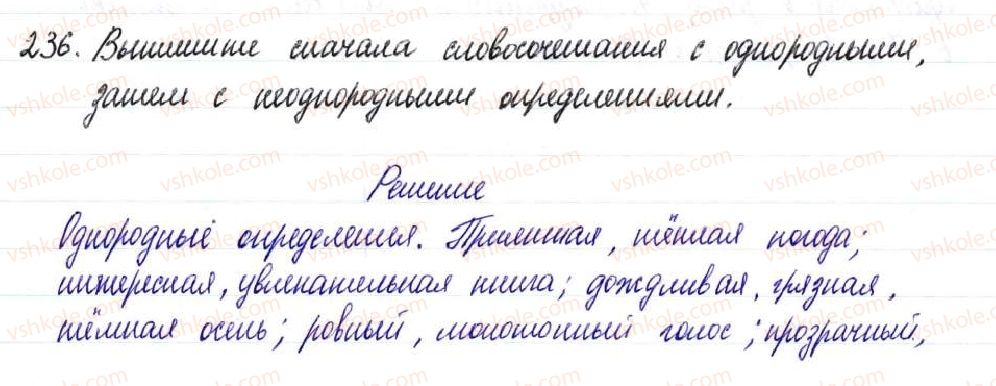 236. Выпишите сначала словосочетания с однородными,
затем с неоднородными определениями.
Решение
Однородные определения. Приятная, тёплая погода;
интересная, увлекательная книга; дождливая, грязная,
тёмная осень; ровный, монотонный голос; прозрачный,